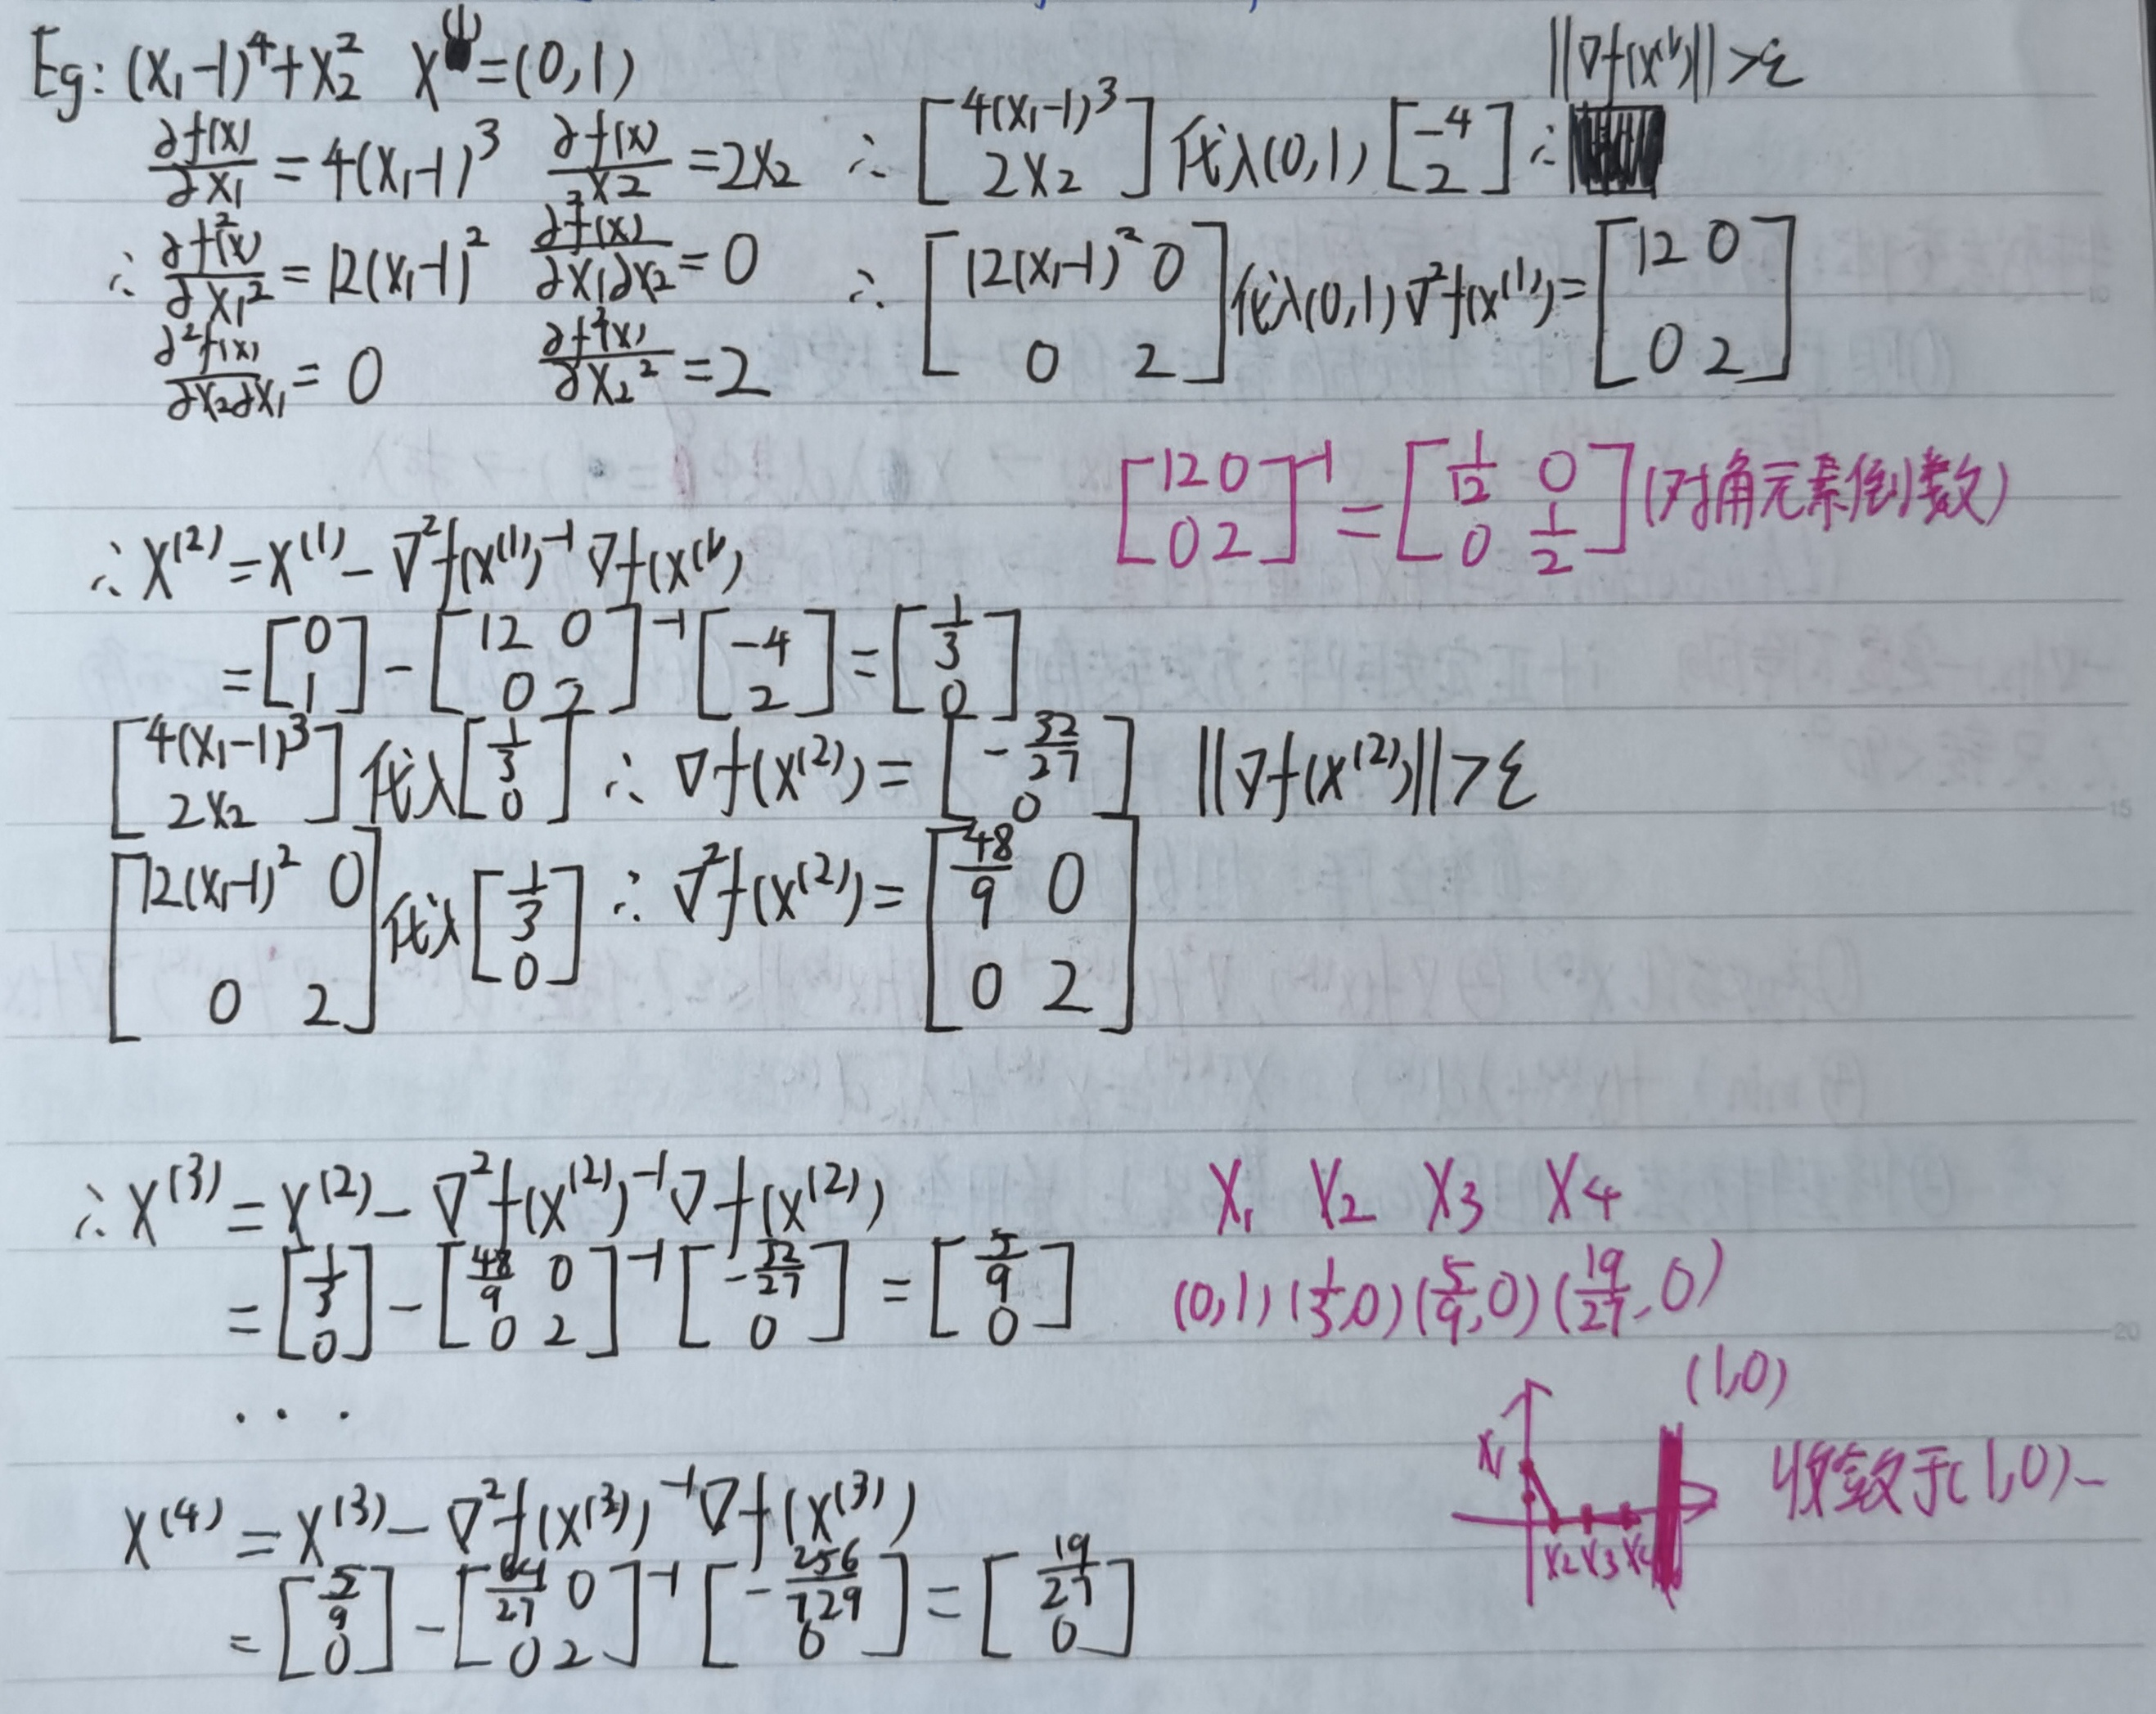 Eg: (x₁-1)⁴+x₂² x⁽¹⁾=(0,1) ||∇f(x⁽¹⁾)||>ε
∂f(x)/∂x₁ = 4(x₁-1)³ ∂f(x)/∂x2 = 2x₂ ∴ [4(x₁-1)³ 2x₂] 代入(0,1) [-4 2] ∴
∴ ∂f²(x)/∂x₁² = 12(x₁-1)² ∂²f(x)/∂x₁∂x₂ = 0 ∴ [12(x₁-1)² 0 0 2] 代入(0,1) ∇²f(x⁽¹⁾) = [12 0 0 2]
∂²f(x)/∂x₂∂x₁ = 0 ∂f²(x)/∂x₂² = 2
[12 0 0 2]⁻¹ = [1/12 0 0 1/2] (对角元素倒数)
∴ x⁽²⁾ = x⁽¹⁾ - ∇²f(x⁽¹⁾)⁻¹ ∇f(x⁽¹⁾)
= [0 1] - [12 0 0 2]⁻¹ [-4 2] = [1/3 0]
[4(x₁-1)³ 2x₂] 代入 [1/3 0] ∴ ∇f(x⁽²⁾) = [-32/27 0] ||∇f(x⁽²⁾)||>ε
[12(x₁-1)² 0 0 2] 代入 [1/3 0] ∴ ∇²f(x⁽²⁾) = [48/9 0 0 2]
∴ x⁽³⁾ = x⁽²⁾ - ∇²f(x⁽²⁾)⁻¹ ∇f(x⁽²⁾)
= [1/3 0] - [48/9 0 0 2]⁻¹ [-32/27 0] = [5/9 0]
X₁ X2 X3 X4
(0,1) (1/3,0) (5/9,0) (19/27,0)
...
(1,0)
X₁
X2 X3 X4
收敛于(1,0)-
x⁽⁴⁾ = x⁽³⁾ - ∇²f(x⁽³⁾)⁻¹ ∇f(x⁽³⁾)
= [5/9 0] - [64/27 0 0 2]⁻¹ [-256/729 0] = [19/27 0]